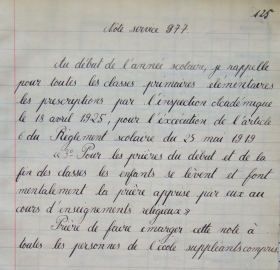 125
Note service 877.
Au début de l'année scolaire, je rappelle
pour toutes les classes primaires élémentaires
les prescriptions par l'Inspection Académique
le 18 avril 1925, pour l'exécution de l'article
6 du Règlement scolaire du 25 mai 1919
Pour les prières du début et de la
fin des classes les enfants se lèvent et font
mentalement la prière apprise par eux au
cours d'enseignements religieux »
Prière de faire émarger cette note à
toutes les personnes de l'école suppléants compris.